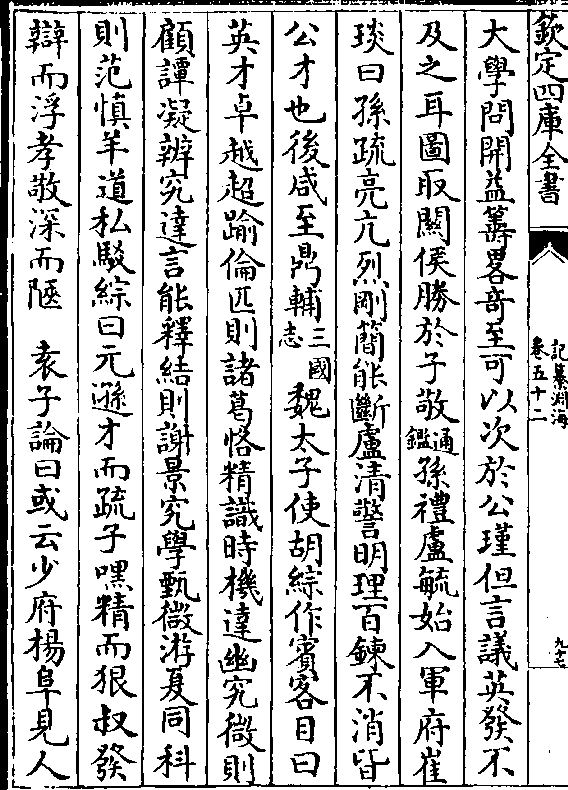 欽定四庫全書
記纂淵海
卷五十二
九七
大學問開益籌畧竒至可以次於公瑾但言議英發不
及之耳圖取關侯勝於子敬通鑑孫禮盧毓始入軍府崔
琰曰孫疏亮亢烈剛簡能斷盧清警明理百鍊不消皆
公才也後咸至鼎輔三國志魏太子使胡綜作賓客目曰
英才卓越超踰倫匹則諸葛恪精識時機達幽究微則
顧譚凝辨究達言能釋結則謝景究學甄微游夏同科
則范慎羊道私駮綜曰元遜才而疏子嘿精而狠叔發
辯而浮孝敬深而陿　袁子論曰或云少府楊阜見人